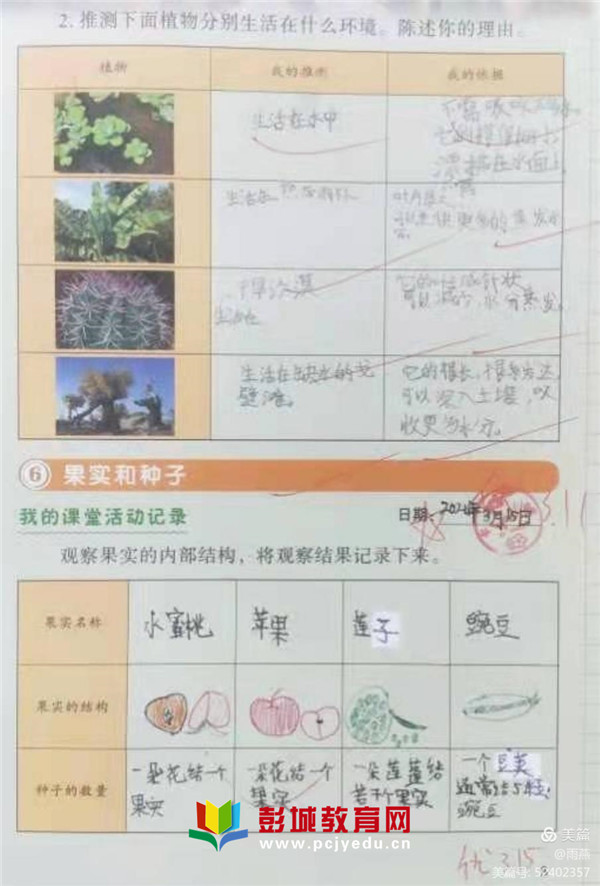 2. 推测下面植物分别生活在什么环境。陈述你的理由。
植物 我的推测 我的依据
生活在水中
漂植在水面上
生活在
叶片
干旱沙漠
生活在
它的叶成针状
可以减少水分蒸发。
生活在缺水的戈
壁滩。
它的根长,根系发达
可以深入土壤,吸
收更多水分。
6 果实和种子
我的课堂活动记录
日期: 2024年3月15日
3.11
观察果实的内部结构,将观察结果记录下来。
果实名称 水蜜桃 苹果 莲子 豌豆
果实的结构
种子的数量
一朵花结一个
果实
一朵花结一个
果实
一朵莲蓬结
若干个果实
一个豆荚
通常结5颗
豌豆
彭城教育网
www.pcjyedu.cn
优 3.15
美篇
@雨燕
美篇号: 52402357